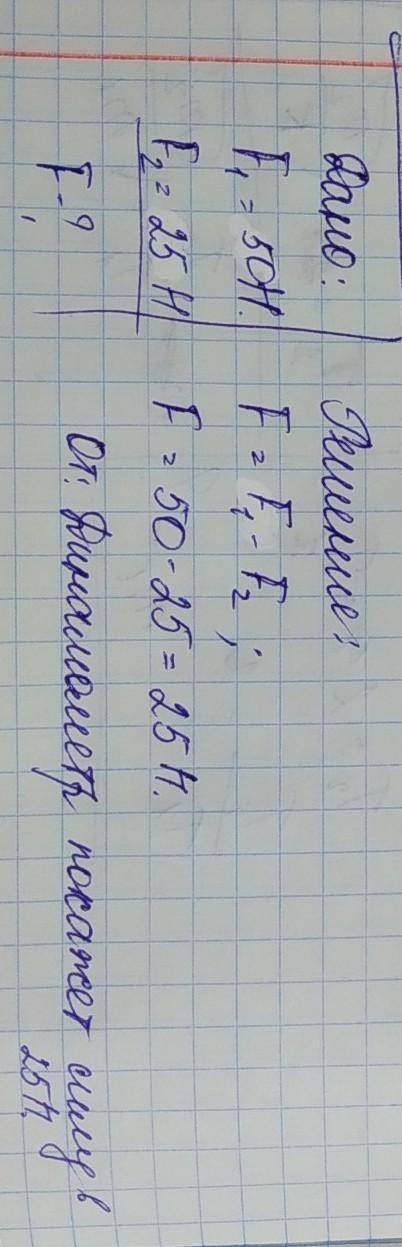 Дано:
F₁ = 50Н.
F₂ = 25 Н
F-?
Решение:
F = F₁ - F₂ ;
F = 50 - 25 = 25 Н.
От: Динамометр покажет силу в
25Н.